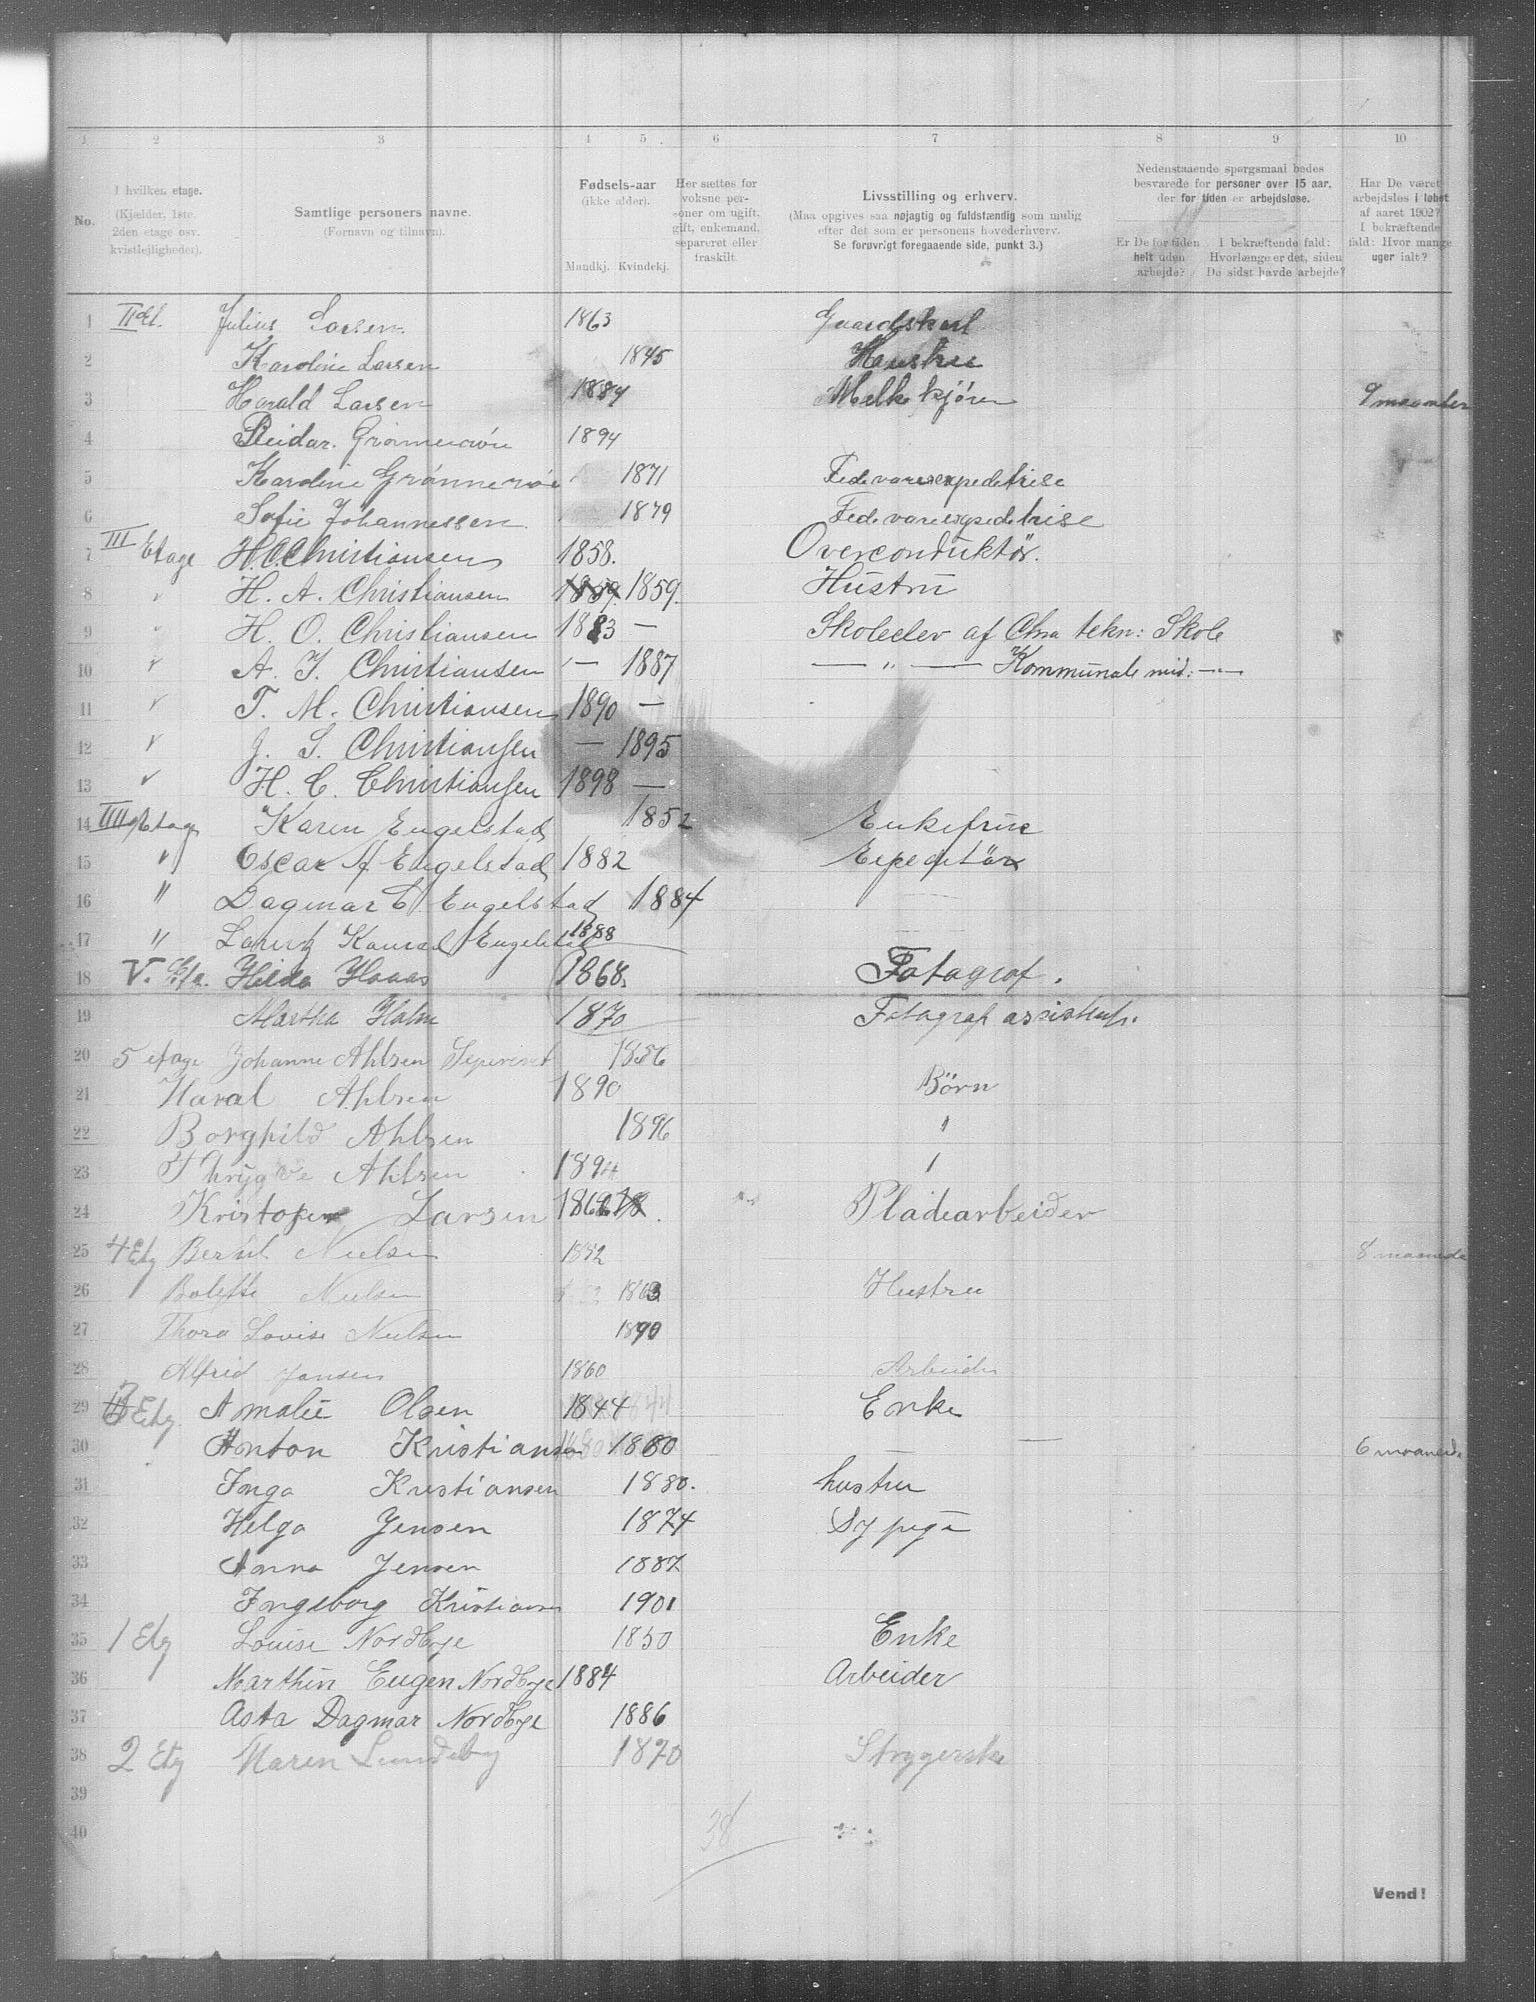 1 2 3 4 5 6 7 8 9 10
No. I hvilken etage. (Kjælder, 1ste, 2den etage osv. kvistleiligheder). Samtlige personers navne. (Fornavn og tilnavn). Fødsels-aar (ikke alder). Mandkj. Kvindekj. Her sættes for voksne personer om ugift, gift, enkemand, separeret eller fraskilt. Livsstilling og erhverv. (Maa opgives saa nøjagtig og fuldstændig som mulig efter det som er personens hovederhverv. Se forøvrigt foregaaende side, punkt 3.) Nedenstaaende spørgsmaal bedes besvarede for personer over 15 aar, der for tiden er arbejdsløse. Er De for tiden helt uden arbejde? I bekræftende fald: Hvorlænge er det, siden De sidst havde arbejde? Har De været arbejdsløs i løbet af aaret 1902? I bekræftende fald: Hvor mange uger ialt?
1 II Et. Julius Larsen 1863 Gaardskarl
2 Karoline Larsen 1845 Hustru
3 Harald Larsen 1884 Melkekjører 9 maaneder
4 Reidar Grønnerøe 1894
5 Karoline Grønnerøe 1871 Fedevareexpeditrise
6 Sofie Johannessen 1879 Fedevareexpeditrise
7 III Etage H. C. Christiansen 1858. Overconduktør.
8 " H. A. Christiansen 1859. 1859. Hustru
9 " H. O. Christiansen 1883 — Skoleelev af Chra tekn: Skole
10 " A. J. Christiansen — 1887 — " — Kommunale mid: —
11 " T. M. Christiansen 1890 —
12 " J. S. Christiansen — 1895
13 " H. C. Christiansen 1898 —
14 IIII Etage Karen Engelstad 1852 Enkefrue
15 " Oscar Af Engelstad 1882 Expeditør
16 " Dagmar C. Engelstad 1884
17 " Lauritz Konrad Engelstad 1888
18 V. Hilda Haaas 1868. Fotograf.
19 Martha Holm 1870 Fotograf assistent.
20 5 etage Johanne Ahlsen Seperiret 1856
21 Haral Ahlsen 1890 Börn
22 Borghild Ahlsen 1896 "
23 Thrygve Ahlsen 1894 "
24 Kristofer Larsen 1868 Pladearbeider
25 4 Etg Bernt Nielsen 1852 8 maaneder
26 Bolette Nielsen 1863 Hustru
27 Thora Lovise Nielsen 1890
28 Alfrid Jansen 1860 Arbeider
29 3 Etg. Amalie Olsen 1844 Enke
30 Anton Kristiansen 1880 — 6 maaneder
31 Inga Kristiansen 1880. hustru
32 Helga Jensen 1874 Sypige
33 Anna Jensen 1887
34 Ingeborg Kristiansen 1901
35 1 Etg Louise Nordbye 1850 Enke
36 Marthin Eugen Nordbye 1884 Arbeider
37 Asta Dagmar Nordbye 1886
38 2 Etg Maren Lundeby 1870 Strygerske
39
40
38
Vend!